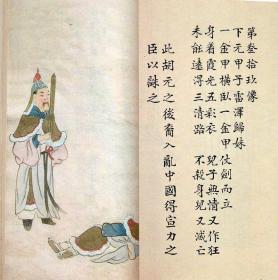 第叁拾玖像
下元甲子雷澤歸妹
一金甲橫臥一金甲仗劍而立
身着霞光五彩衣 兒子無情又作狂
未能遠得三清路 不殺身兒又滅亡
此胡元之後裔入亂中國得宣力之
臣以誅之